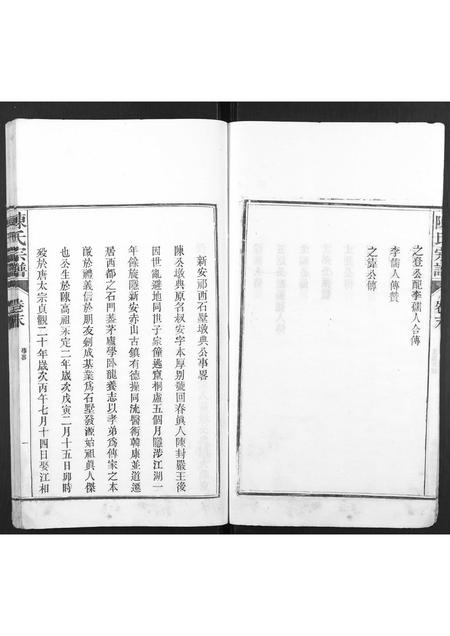 陳氏宗譜
卷末
之登公配李孺人合傳
李孺人傳贊
之鷟公傳
新安祁西石墅墩典公事畧
陳公墩典原名叔安字本厚別號回春眞人陳封嚴王後
因世亂避地同世子宗僮逃竄桐廬五個月隱涉江湖一
年餘旋隱新安赤山古鎮有德操同流醫術韓康並道遷
居西都之石門蓁茅廬學臥龍養志以孝弟爲傳家之本
敵於禮義信於朋友剏成基業爲石墅發源始祖眞人傑
也公生於陳高祖永定二年歲次戊寅二月十五日卯時
歿於唐太宗貞觀二十年歲次丙午七月十四日娶江相
陳氏宗譜
卷末
一